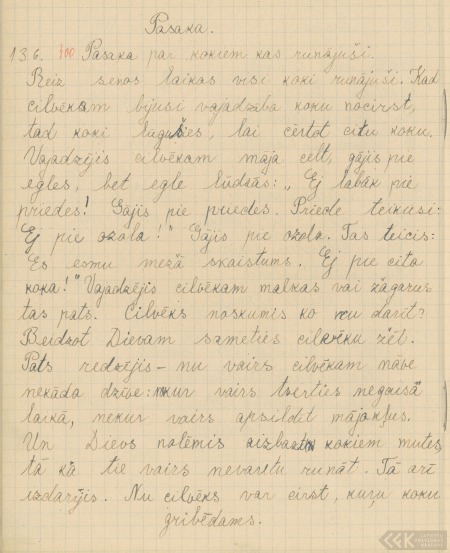 Pasaka.
136. 300 Pasaka par kokiem kas runājuši.
Reiz senos laikos visi koki runājuši. Kad
cilvēkam bijusi vajadzība koku nocirst,
tad koki lūgušies, lai cērtot citu koku.
Vajadzējis cilvēkam māju celt, gājis pie
egles, bet egle lūdzās: „Ej labāk pie
priedes! Gājis pie priedes. Priede teikusi:
Ej pie ozola!" Gājis pie ozola. Tas teicis:
Es esmu mežā skaistums. Ej pie cita
koka!" Vajadzējis cilvēkam malkas vai žagarus
tas pats. Cilvēks noskumis ko nu darīt?
Beidzot Dievam sameties cilvēku žēl.
Pats redzējis – nu vairs cilvēkam nāve
nekāda dzīve: nekur vairs tverties negaisā
laikā, nekur vairs apsildīt mājokļus.
Un Dievs nolēmis aizbāzt kokiem mutes,
tā ka tie vairs nevarētu runāt. Tā arī
izdarījis. Nu cilvēks var cirst, kuŗu koku
gribēdams.